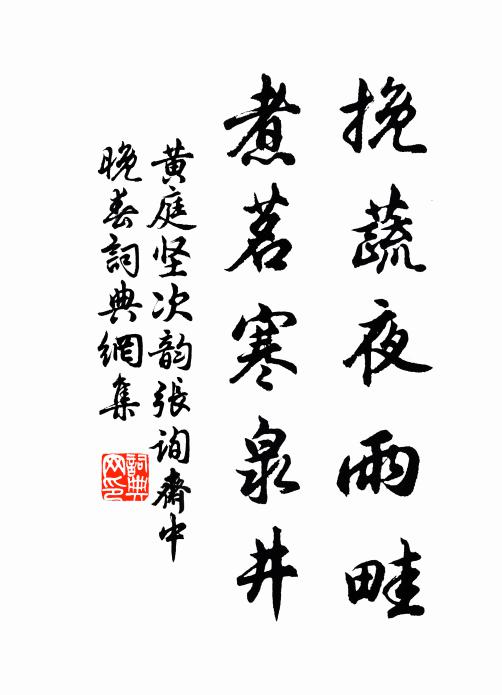 挽蔬夜雨畦
煮茗寒泉井
黄庭坚次韵张询斋中
晚春词典網集
詞典网印